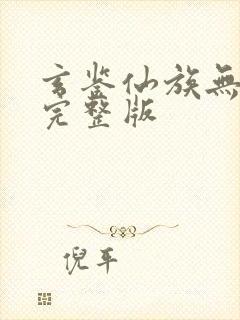 玄鉴仙族無
完整版
倪平